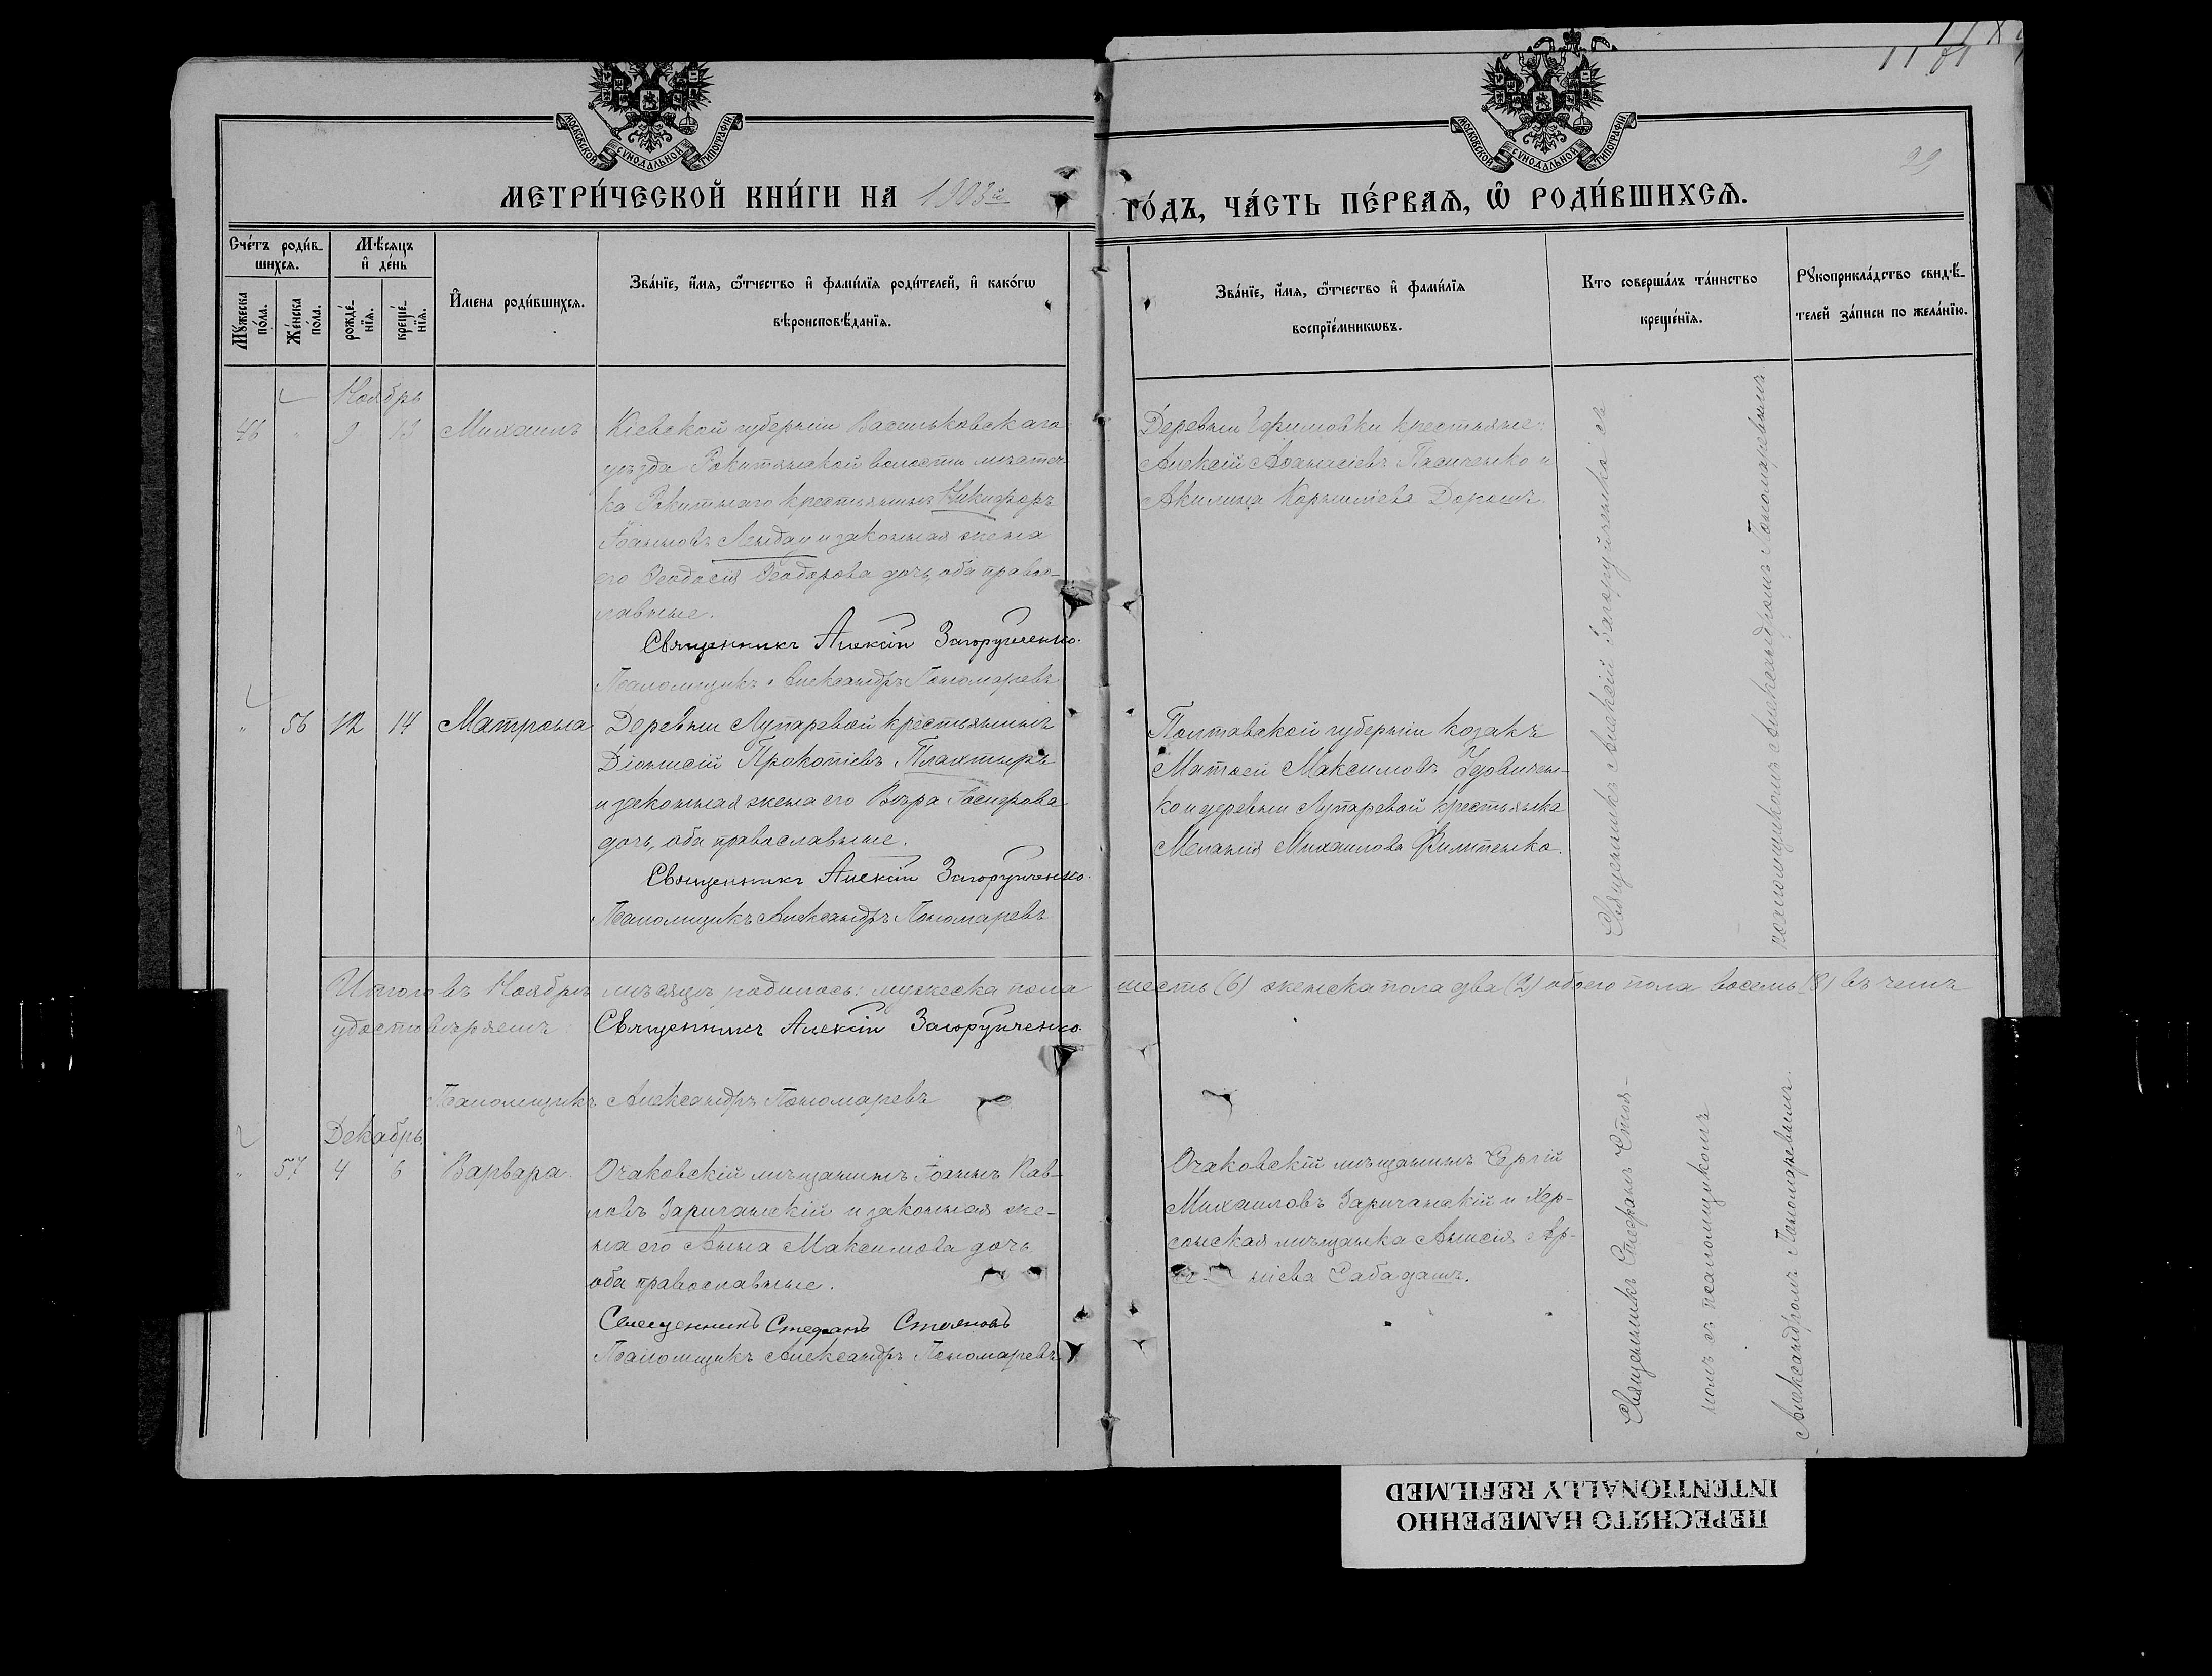 29
МОСКОВСКОЙ СУНОДАЛЬНОЙ ТИПОГРАФІИ
МОСКОВСКОЙ СУНОДАЛЬНОЙ ТИПОГРАФІИ
МЕТРИ́ЧЕСКОЙ КНИ́ГИ НА 1903й
ГО́ДЪ, ЧА́СТЬ ПЕ́РВАѦ, Ѡ҆ РОДИ́ВШИХСѦ.
Сче́тъ роди́в-
шихсѧ.
Мꙋ́жеска по́ла.
Же́нска по́ла.
Мѣ́сѧцъ
и҆ де́нь
рожде́нїѧ.
креще́нїѧ.
И҆мена роди́вшихсѧ.
Зва́нїе, и҆́мѧ, ѻ҆́тчество и҆ фами́лїѧ роди́телей, и҆ како́гѡ
вѣроисповѣ́данїѧ.
Зва́нїе, и҆́мѧ, ѻ҆́тчество и҆ фами́лїѧ
воспрїе́мникѡвъ.
Кто соверша́лъ та́инство
креще́нїѧ.
Рꙋкоприкла́дство свидѣ́-
телей за́писи по жела́нїю.
Ноябрь
46 " 9 13 Михаилъ
Кіевской губерніи Васильковскаго
уѣзда Рокитянской волости мѣстеч-
ка Рокитнаго крестьянинъ Никифоръ
Іоанновъ Лендау и законная жена
его Ѳеодосія Ѳеодорова дочь, оба право-
славные.
Священникъ Алексій Загоруйченко.
Псаломщикъ Александръ Пономаревъ
Деревни Ефимовки крестьяне:
Алексій Аѳанасіевъ Пасиченко и
Акилина Корниліева Дорошъ
Священникъ Алексій Загоруйченко съ
псаломщикомъ Александромъ Пономаревымъ
" 56 12 14 Матрона
Деревни Лупаревой крестьянинъ
Діонисій Прокопіевъ Плахтырь
и законная жена его Вѣра Іосифова
дочь, оба православные.
Священникъ Алексій Загоруйченко.
Псаломщикъ Александръ Пономаревъ
Полтавской губерніи козакъ
Матвей Максимовъ Удовичен-
ко и деревни Лупаревой крестьянка
Меланія Михаилова Филипенко.
Итого въ Ноябрѣ мѣсяцѣ родилось: мужеска пола шесть (6) женска пола два (2) обоего пола восемь (8) въ чемъ
удостовѣряемъ: Священникъ Алексій Загоруйченко.
Псаломщикъ Александръ Пономаревъ
Декабрь
" 57 4 6 Варвара.
Очаковскій мѣщанинъ Іоаннъ Пав-
ловъ Заричанскій и законная же-
на его Анна Максимова дочь
оба православные.
Священникъ Стефанъ Стояновъ
Псаломщикъ Александръ Пономаревъ
Очаковскій мѣщанинъ Сергій
Михаиловъ Заричанскій и Хер-
сонская мѣщанка Анисія Ар-
ніева Сабадашъ.
Священникъ Стефанъ Стоя-
новъ съ псаломщикомъ
Александромъ Пономаревымъ.
ПЕРЕСНЯТО НАМЕРЕННО
INTENTIONALLY REFILMED